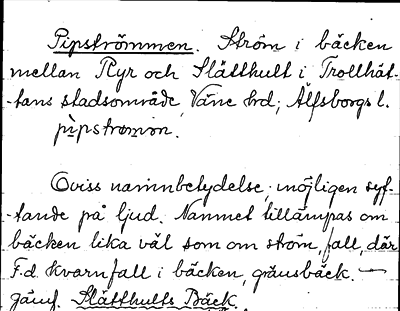 Pipströmmen. Ström i bäcken
mellan Ryr och Slätthult i Trollhät-
-tans stadsområde, Väne hrd; Älfsborgs l.
pìpstrømon.
Oviss namnbetydelse; möjligen syf-
-tande på ljud. Namnet tillämpas om
bäcken lika väl som om ström, fall, där
F.d. kvarnfall i bäcken, gränsbäck. —
jämf. Slätthults Bäck.